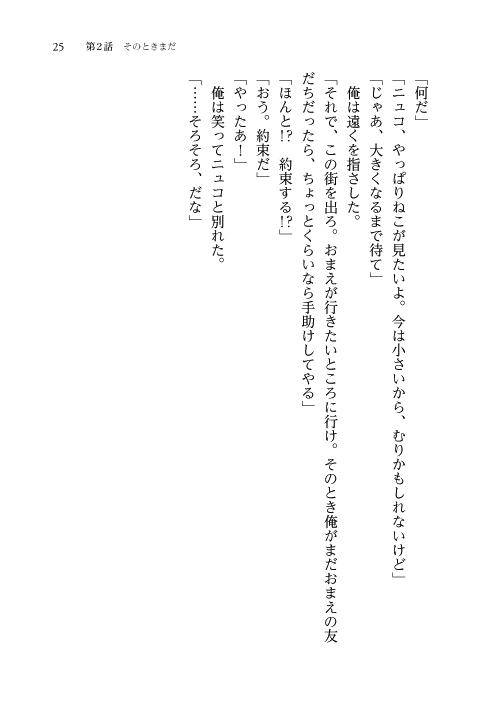 25　第2話　そのときまだ
「何だ」
「ニュコ、やっぱりねこが見たいよ。今は小さいから、むりかもしれないけど」
「じゃあ、大きくなるまで待て」
　俺は遠くを指さした。
「それで、この街を出ろ。おまえが行きたいところに行け。そのとき俺がまだおまえの友
だちだったら、ちょっとくらいなら手助けしてやる」
「ほんと!?　約束する!?」
「おう。約束だ」
「やったあ！」
　俺は笑ってニュコと別れた。
「……そろそろ、だな」